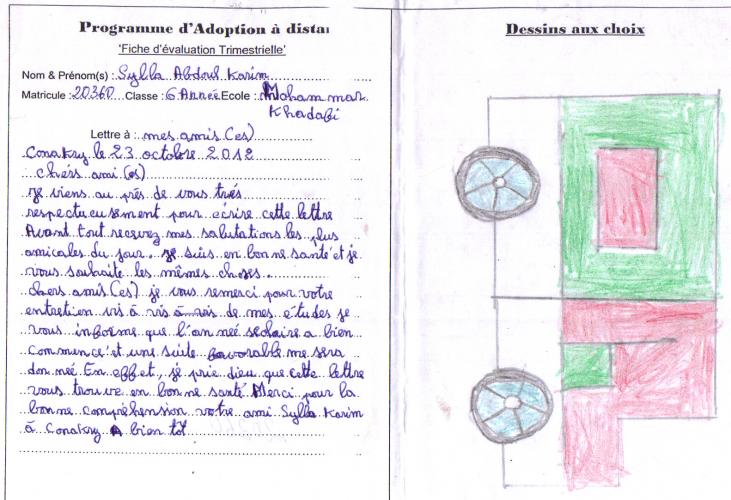 Programme d'Adoption à dista
'Fiche d'évaluation Trimestrielle'
Nom & Prénom(s) : Sylla Abdoul Karim
Matricule : 20360 Classe : 6 Année Ecole : Mohammar
Khadafi
Lettre à : mes amis (es)
Conakry le 23 octobre 2012
chers ami (es)
Je viens au près de vous trés
respectueusement pour ecrire cette lettre
Avant tout recevez mes salutations les plus
amicales du jour. Je suis en bonne santé et je
vous souhaite les mêmes choses.
chers amis (es) je vous remerci pour votre
entretien vis à vis à vis de mes études je
vous informe que l'anneé scolaire a bien
Commencé et une suite favorable me sera
donneé En effet, je prie dieu que cette lettre
vous trouve en bonne santé Merci pour la
bonne compréhension votre ami Sylla Karim
à Conakry A bien tôt
Dessins aux choix